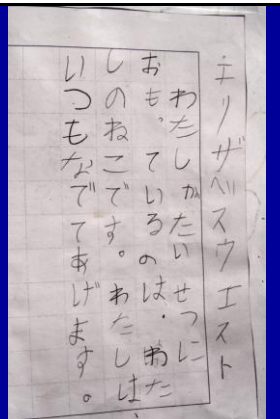 エリザベスウエスト
わたしがたいせつに
おも、ているのは、わた
しのねこです。わたしは
いつもなでてあげます。